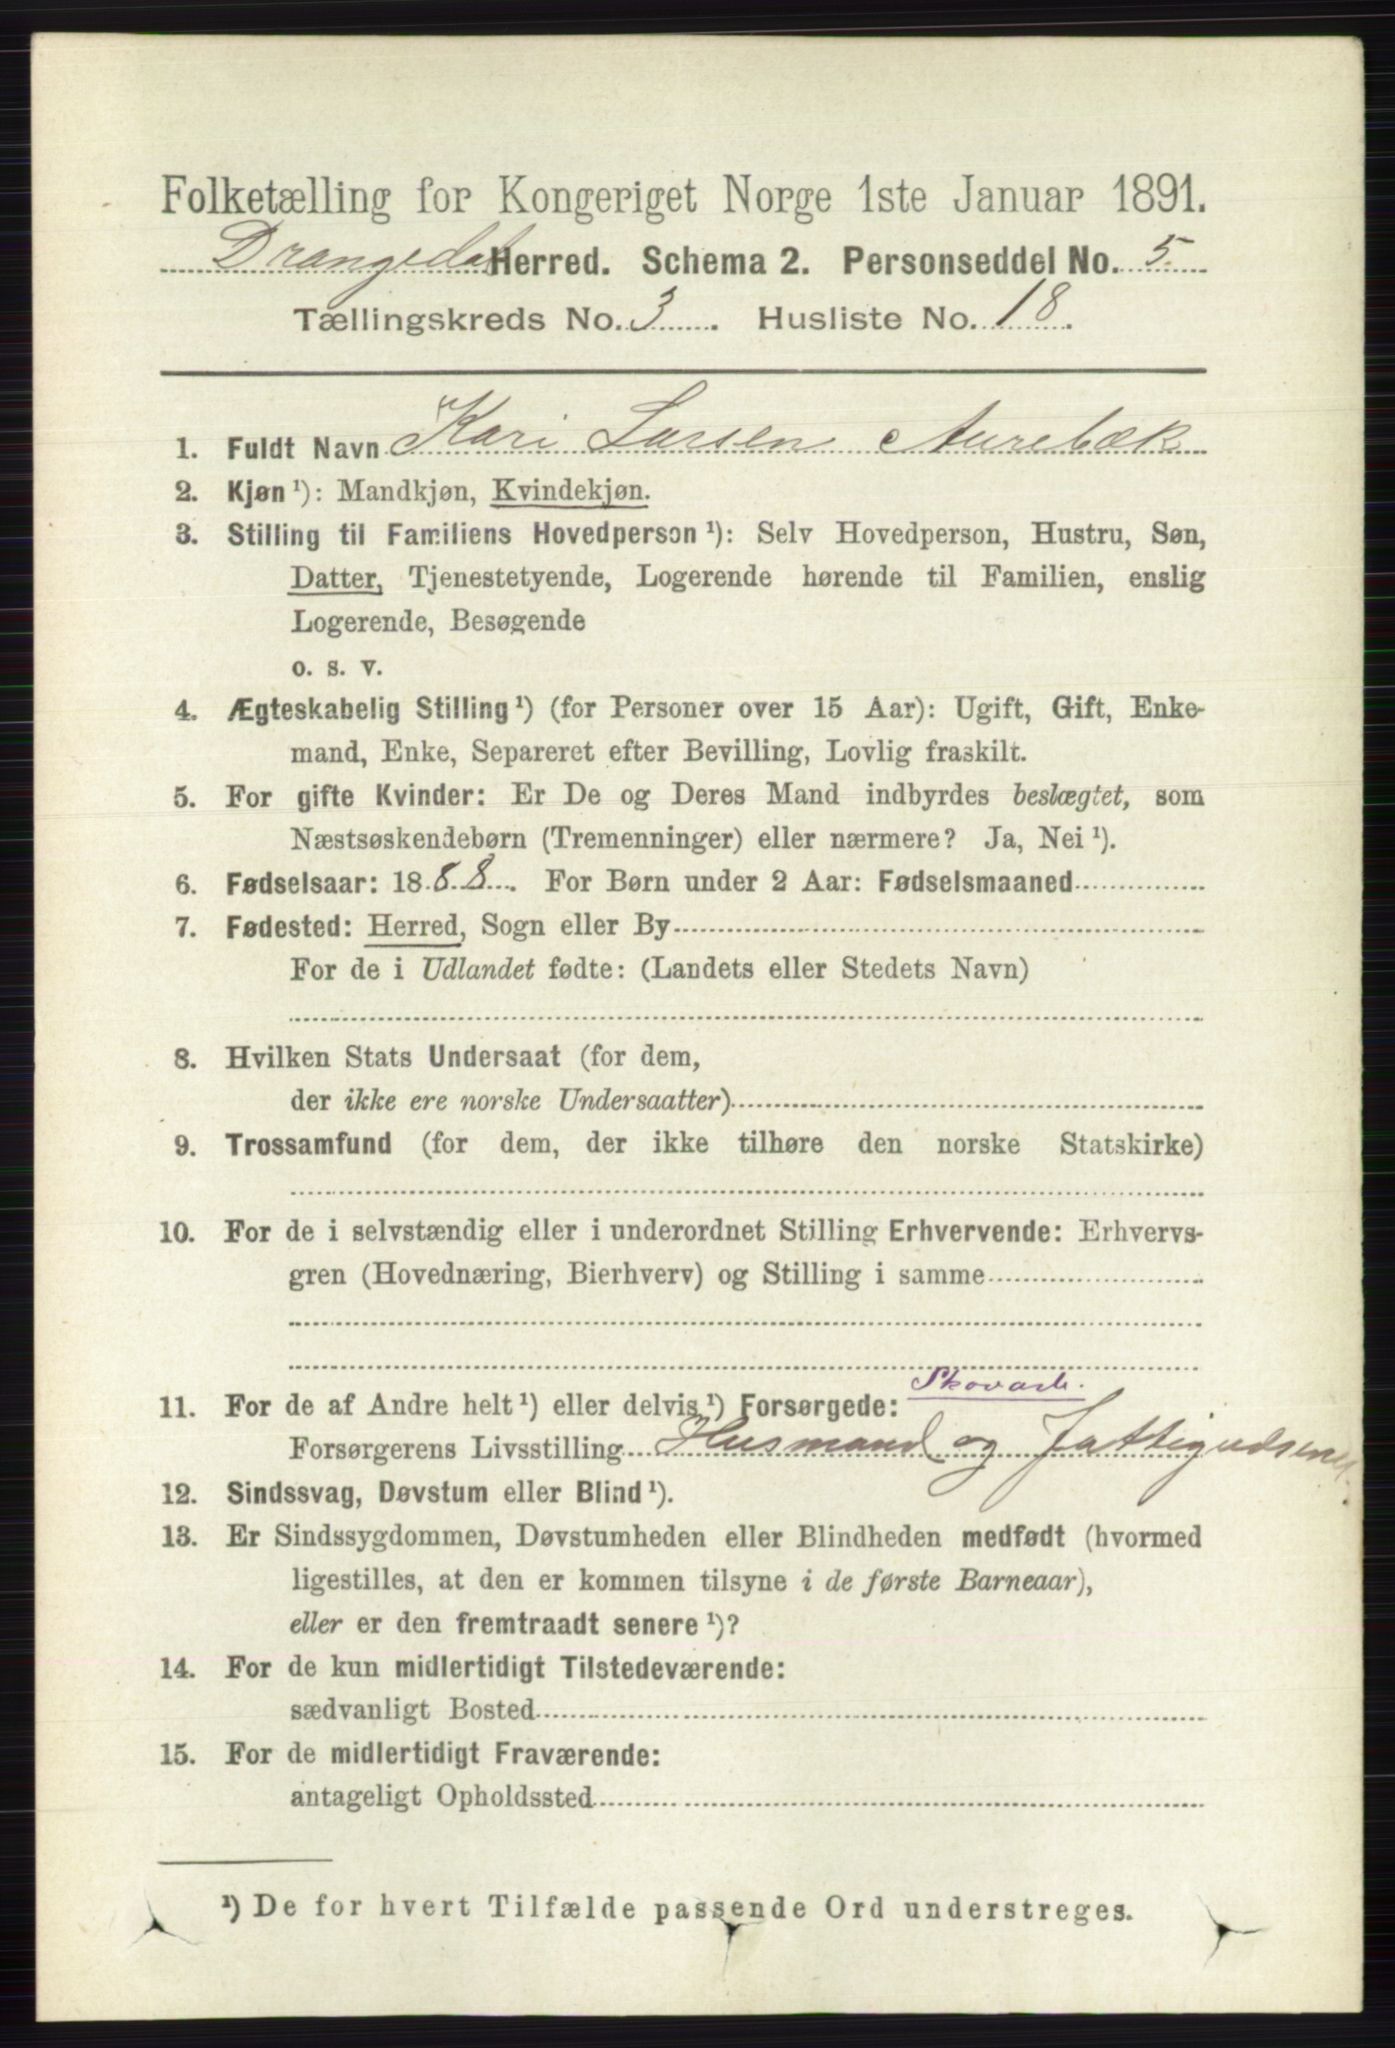 Folketælling for Kongeriget Norge 1ste Januar 1891.
Drangedal Herred. Schema 2. Personseddel No. 5
Tællingskreds No. 3. Husliste No. 18.
1. Fuldt Navn Kari Larsen Aurebæk
2. Kjøn ¹): Mandkjøn, Kvindekjøn.
3. Stilling til Familiens Hovedperson ¹): Selv Hovedperson, Hustru, Søn,
Datter, Tjenestetyende, Logerende hørende til Familien, enslig
Logerende, Besøgende
o. s. v.
4. Ægteskabelig Stilling ¹) (for Personer over 15 Aar): Ugift, Gift, Enke-
mand, Enke, Separeret efter Bevilling, Lovlig fraskilt.
5. For gifte Kvinder: Er De og Deres Mand indbyrdes beslægtet, som
Næstsøskendebørn (Tremenninger) eller nærmere? Ja, Nei ¹).
6. Fødselsaar: 1888. For Børn under 2 Aar: Fødselsmaaned
7. Fødested: Herred, Sogn eller By
For de i Udlandet fødte: (Landets eller Stedets Navn)
8. Hvilken Stats Undersaat (for dem,
der ikke ere norske Undersaatter)
9. Trossamfund (for dem, der ikke tilhøre den norske Statskirke)
10. For de i selvstændig eller i underordnet Stilling Erhvervende: Erhvervs-
gren (Hovednæring, Bierhverv) og Stilling i samme
Skovarb.
11. For de af Andre helt ¹) eller delvis ¹) Forsørgede:
Forsørgerens Livsstilling Husmand og
12. Sindssvag, Døvstum eller Blind ¹).
13. Er Sindssygdommen, Døvstumheden eller Blindheden medfødt (hvormed
ligestilles, at den er kommen tilsyne i de første Barneaar),
eller er den fremtraadt senere ¹)?
14. For de kun midlertidigt Tilstedeværende:
sædvanligt Bosted
15. For de midlertidigt Fraværende:
antageligt Opholdssted
¹) De for hvert Tilfælde passende Ord understreges.